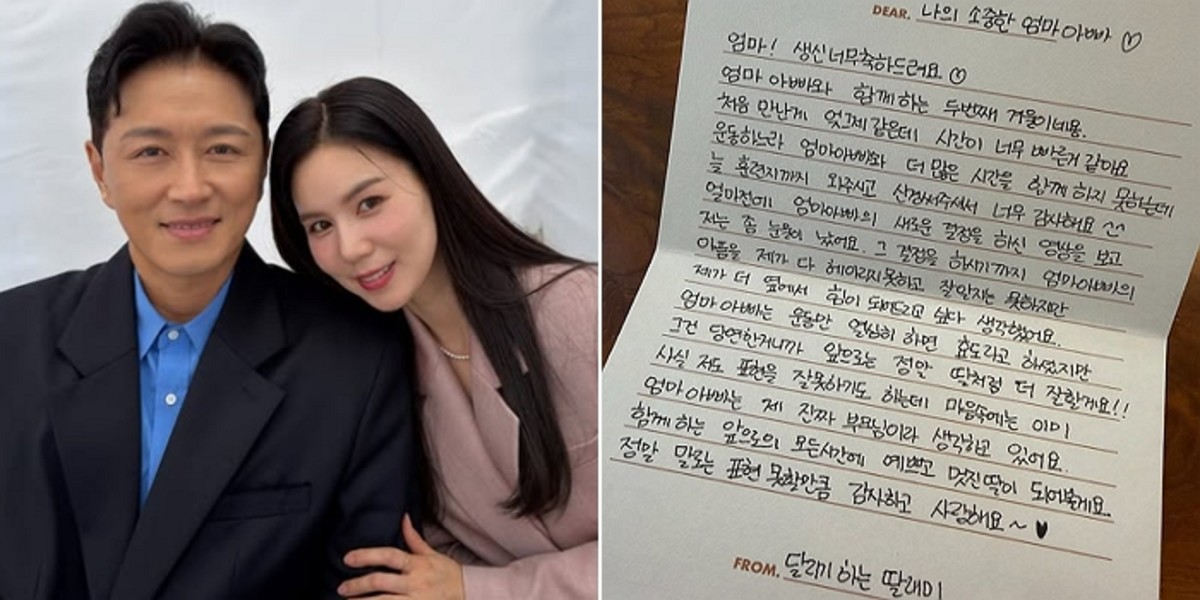 DEAR. 나의 소중한 엄마 아빠 ♡
엄마! 생신 너무 축하드려요 ♡
엄마 아빠와 함께하는 두번째 겨울이네용.
처음 만난게 엊그제 같은데 시간이 너무 빠른거 같아요
운동하느라 엄마아빠와 더 많은 시간을 함께 하지 못하는데
늘 훈련지까지 와주시고 신경써주셔서 너무 감사해요 ^^
얼마전에 엄마아빠의 새로운 결정을 하신 영상을 보고
저는 좀 눈물이 났어요. 그 결정을 하시기까지 엄마아빠의
아픔을 제가 다 헤아리지 못하고 잘 알지는 못하지만
제가 더 옆에서 힘이 되어드리고 싶다 생각했어요.
엄마 아빠는 운동만 열심히 하면 효도라고 하셨지만
그건 당연한거니까 앞으로는 정말 딸처럼 더 잘할게요!!
사실 저도 표현을 잘못하기도 하는데 마음속에는 이미
엄마 아빠는 제 진짜 부모님이라 생각하고 있어요.
함께 하는 앞으로의 모든시간에 예쁘고 멋진 딸이 되어볼게요.
정말 말로는 표현 못할만큼 감사하고 사랑해요~ ♥
FROM. 달리기 하는 딸래미